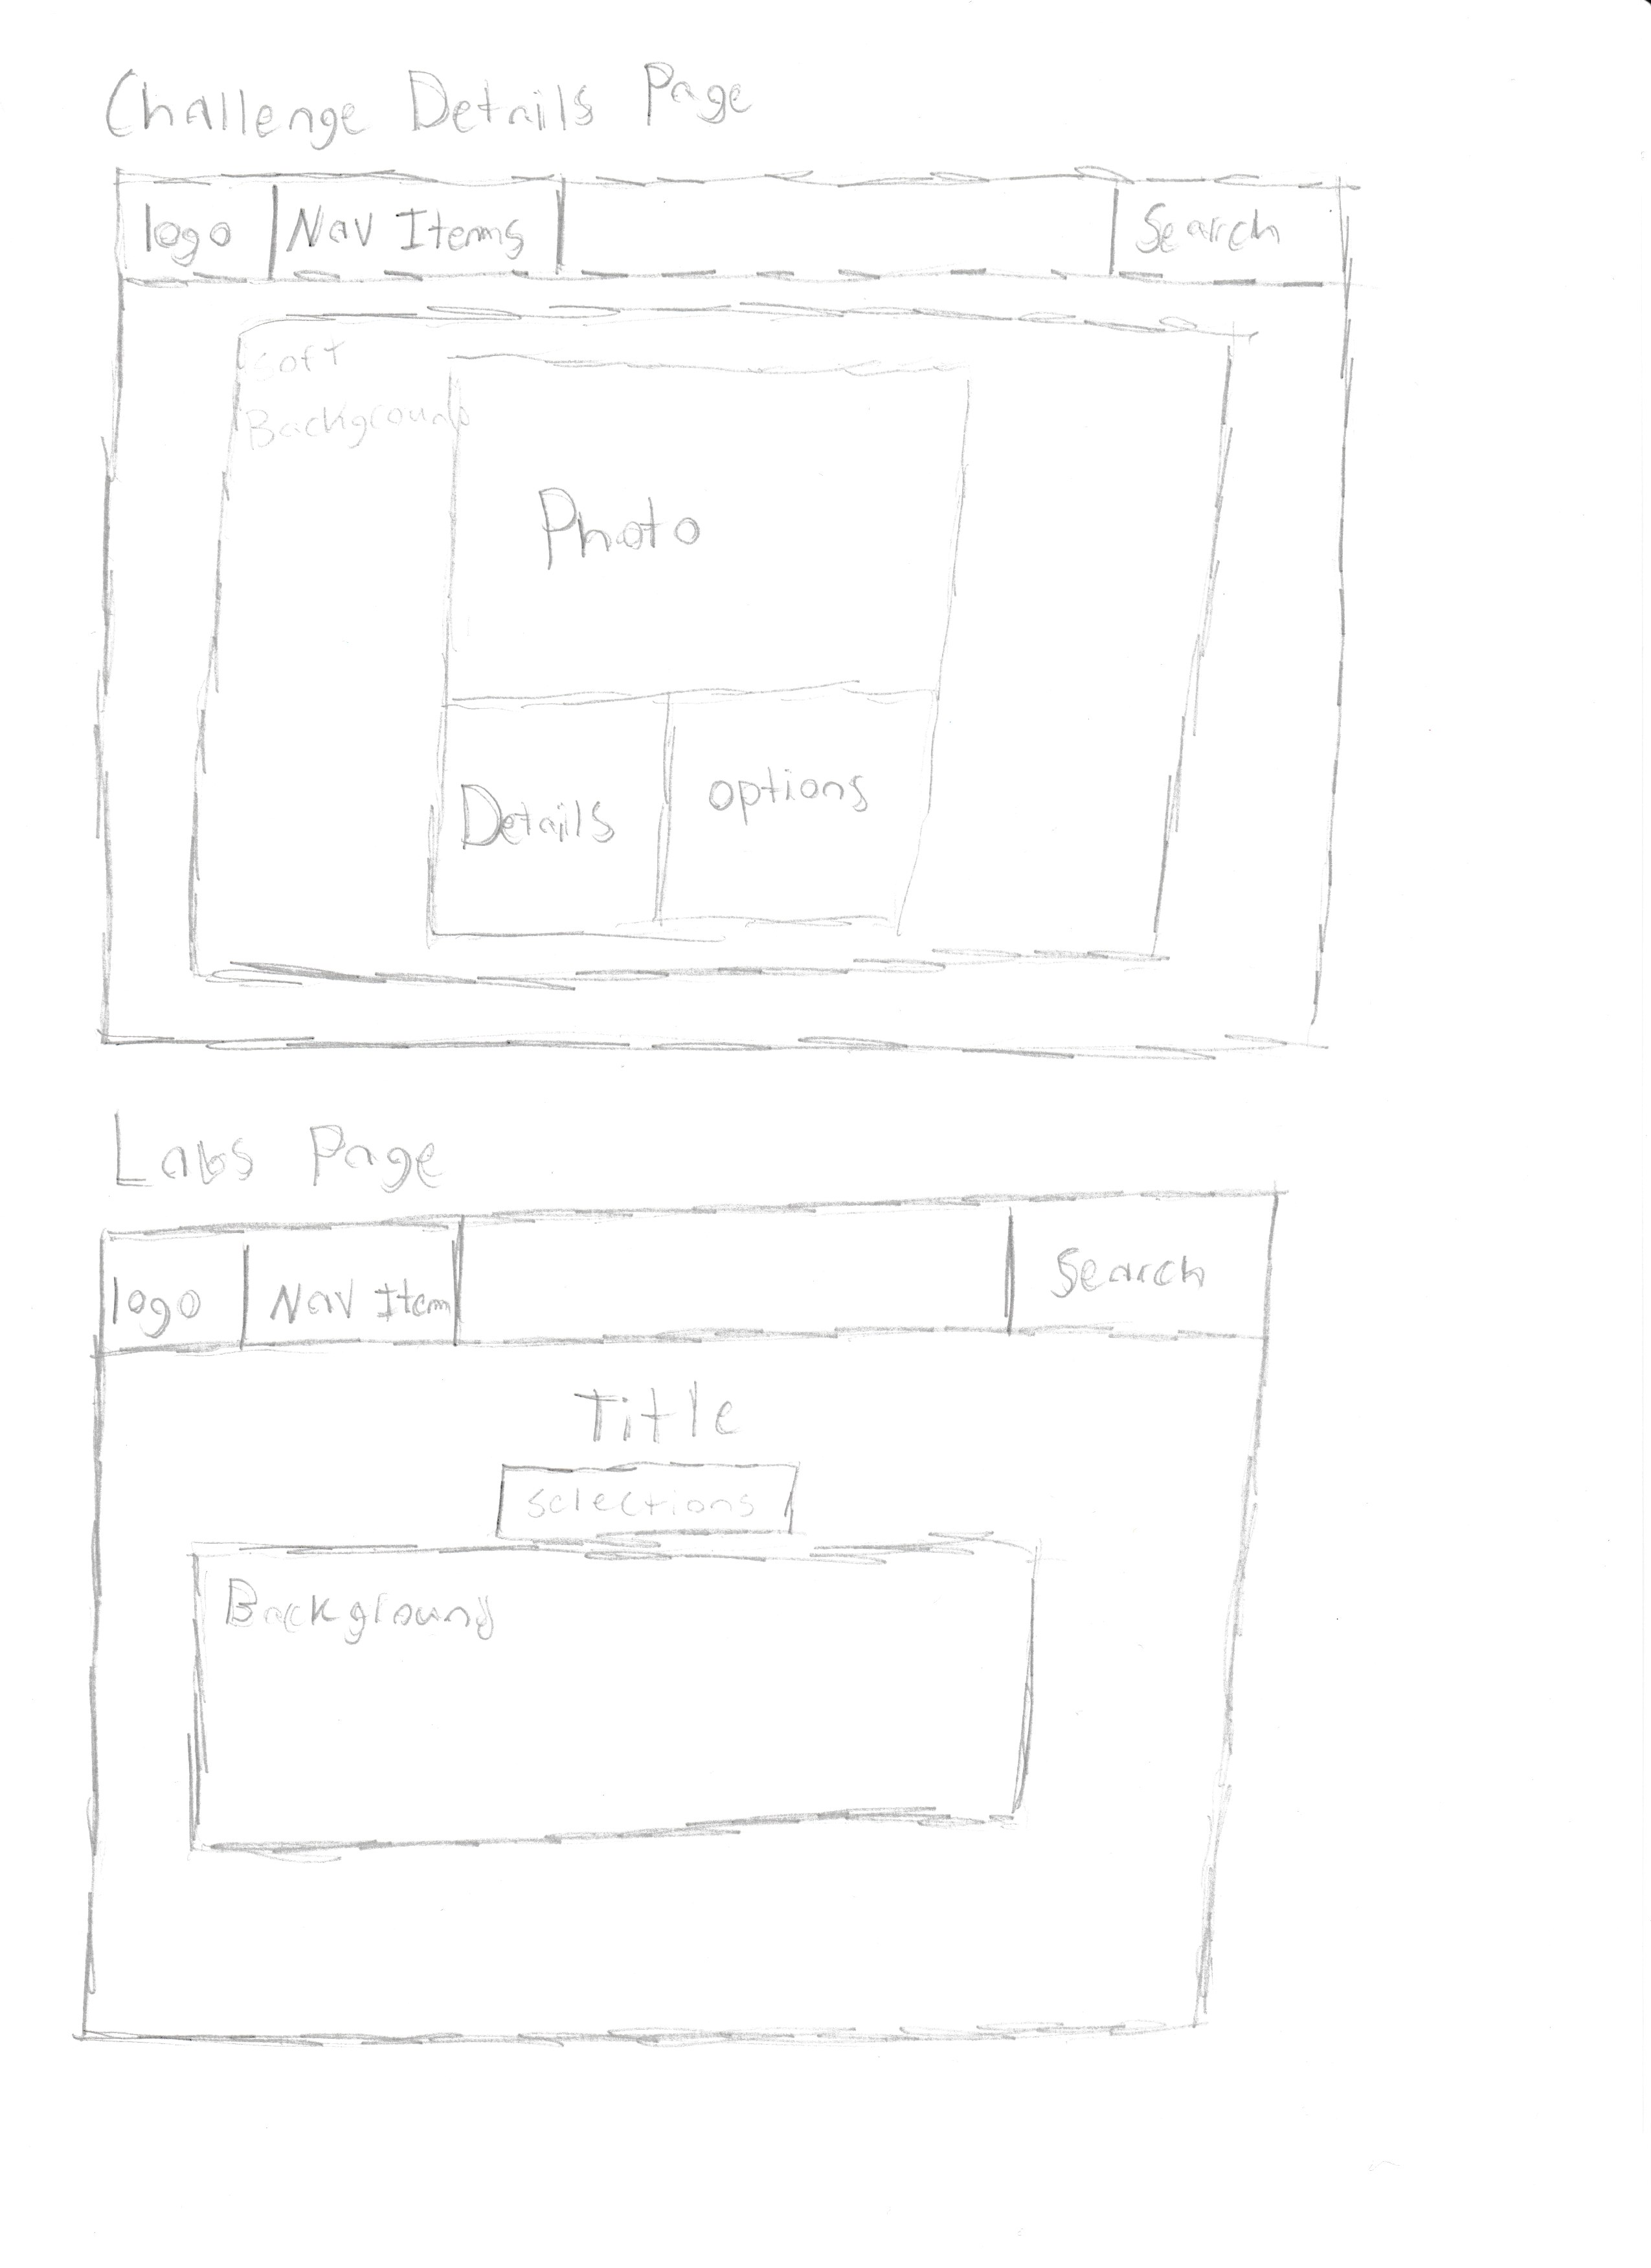 Challenge Details Page
logo Nav Items Search
Soft
Background
Photo
Details options
Labs Page
logo Nav Item Search
Title
Selections
Background